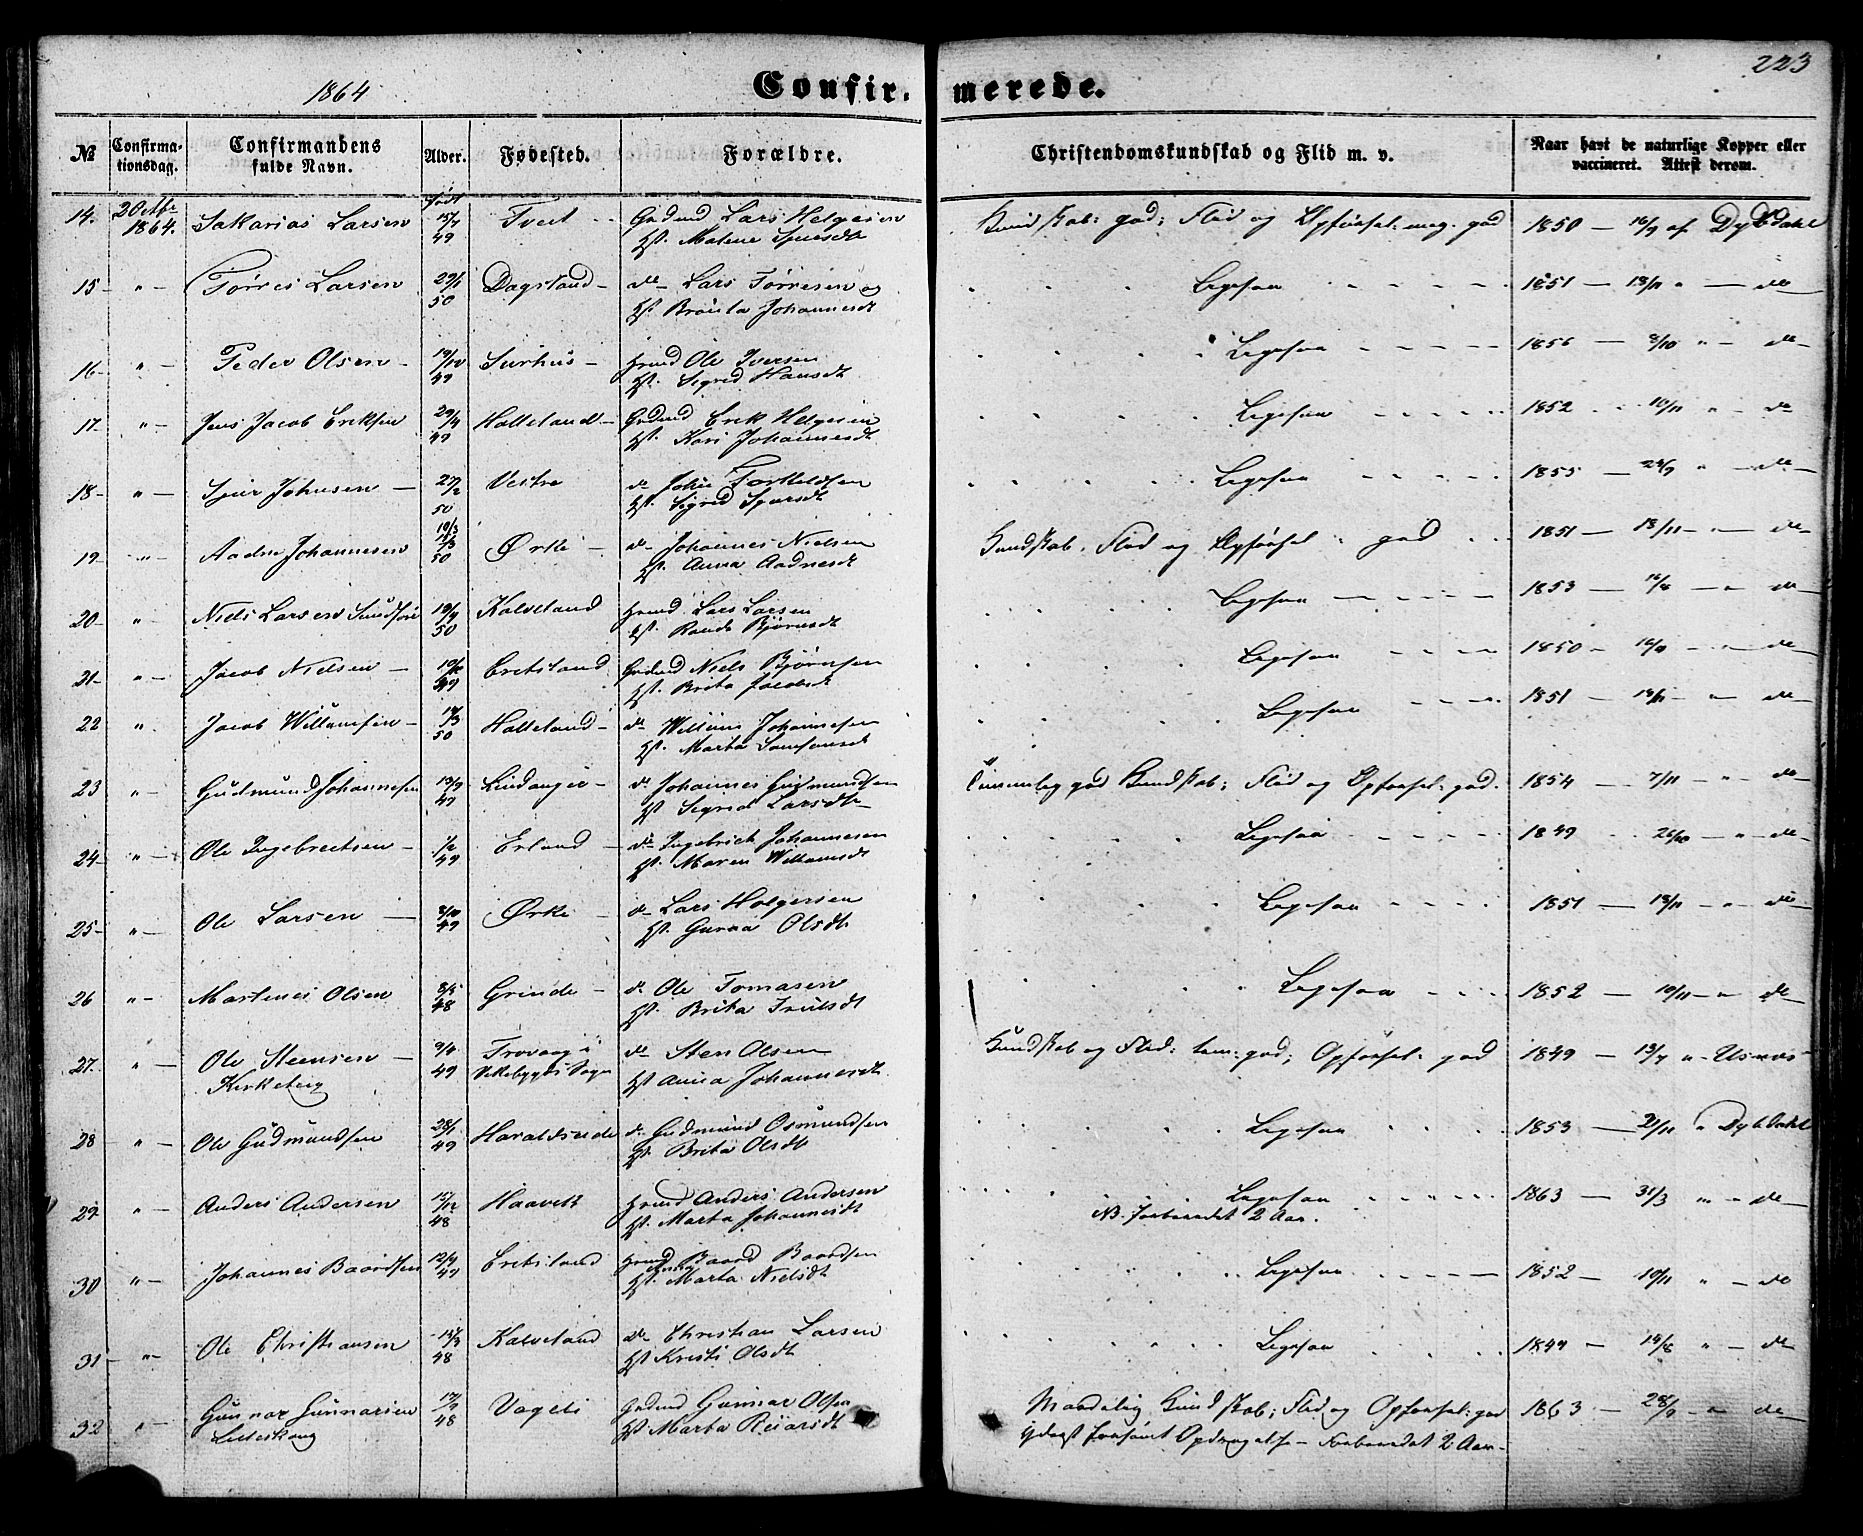 223
1864
Confir-merede.
№ Confirma-tionsdag. Confirmandens fulde Navn. Alder. Fødested. Forældre. Christendomskundskab og Flid m. v. Naar havt de naturlige Kopper eller vaccineret. Attest derom.
født
14. 2 Octbr 1864. Sakarias Larsen 15/7 49 Tveit Gadmd Lars Helgesen Hst. Malene 1850 — 16/9 af Dybdahl
Kundskab: god; Flid og Opførsel: meg. god
15 " Tørres Larsen 29/1 50 Dagsland do Lars Tørresen og Hst. Brønla Johannesdt Ligesaa 1851 — 13/11 " do
16 " Peder Olsen 19/12 49 Surhus Hmd Ole Iversen Hst. Sigrid Hansdt Ligesaa 1856 — 8/10 " do
17 " Jens Jacob Eriksen 29/4 49 Halleland Gadmd Erik Helgesen Hst. Kari Johannesdt Ligesaa 1852 10/11 " do
18 " Sjur Johnsen 27/2 50 Vestre do John Torkeldsen Hst. Sigrid Sjursdt Ligesaa 1855 — 24/9 " do
19 " Aadne Johannesen 50 Ørke do Johannes Nielsen Hst. Anna Aadnesdt Kundskab, Flid og Opførsel: god 1851 — 13/11 " do
20 " Niels Larsen 19/4 50 Kalveland Hmd Lars Larsen Hst. Bjørnsdt Ligesaa 1853 " do
21 " Jacob Nielsen 49 Eretsland Gadmd Niels Bjørnsen Hst. Brita Jacobsdt Ligesaa 1850 — " do
22 " Jacob Willumsen 50 Halleland do Willum Johannesen Hst. Marta Samsonsdt Ligesaa 1851 — 13/11 " do
23 " Gudmund Johannesen 13/9 49 Lindanger do Johannes Gudmundsen Hst. Sigrid Larsdt Temmelig god Kundskab; Flid og Opførsel: god. 1854 — 7/11 " do
24 " Ole Ingebretsen 1/2 49 Erland do Ingebrick Johannesen Hst. Maren Willumsdt Ligesaa 1849 26/10 " do
25 " Ole Larsen 8/10 49 Ørke do Lars Holgersen Hst. Gurina Olsdt Ligesaa 1851 — 13/11 " do
26 " Martines Olsen 8/5 48 Grinde do Ole Tomasen Hst. Brita Truilsdt Ligesaa 1852 — 10/11 " do
27 " Ole Steensen Kirkeberg 9/6 49 Trovaag i Vikebygds Sogn do Sten Olsen Hst Anna Johannesdt Kundskab og Flid: tem: god; Opførsel: god 1849 — 13/7 " Usnæs
28 " Ole Gudmundsen 28/1 49 Haraldseide do Gudmund Osmundsen Hst. Brita Olsdt Ligesaa 1853 — 21/11 " Dybdahl
29 " Anders Andersen 15/12 48 Haavik Hmd Anders Andersen Hst. Marta Johannesdt Ligesaa 1863 — 31/3 " do
NB. forberedet 2 Aar.
30 " Johannes Baardsen 12/4 49 Eretsland Hmd Baard Baardsen Hst. Marta Nielsdt Ligesaa 1852 — 10/11 " do
31 " Ole Christiansen 48 Kalveland do Christian Larsen Hst Kristi Olsdt Ligesaa 1849 — 14/8 " do
32 " Gunnar Gunnarsen 48 Vageli Gadmd Gunnar Olsen Hst. Marta Reiarsdt Maadelig Kundskab; Flid og Opførsel: god 1863 — 28/9 " do
yderst forsømt Opdragelse — Forberedet 2 Aar.